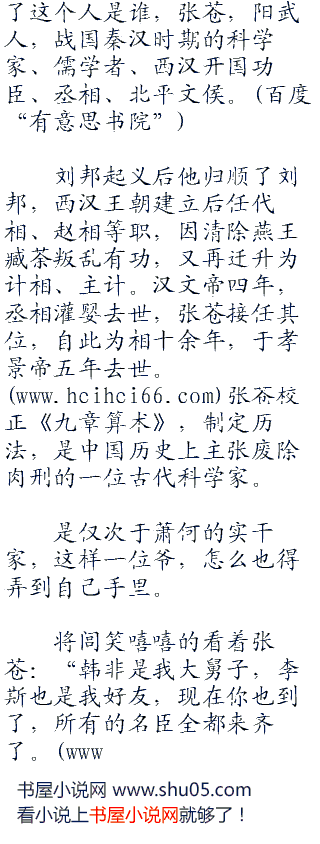 了这个人是谁，张苍，阳武
人，战国秦汉时期的科学
家、儒学者、西汉开国功
臣、丞相、北平文侯。(百度
“有意思书院”)
刘邦起义后他归顺了刘
邦，西汉王朝建立后任代
相、赵相等职，因清除燕王
臧荼叛乱有功，又再迁升为
计相、主计。汉文帝四年，
丞相灌婴去世，张苍接任其
位，自此为相十余年，于孝
景帝五年去世。
(www.hcihci66.com)张苍校
正《九章算术》，制定历
法，是中国历史上主张废除
肉刑的一位古代科学家。
是仅次于萧何的实干
家，这样一位爷，怎么也得
弄到自己手里。
将闾笑嘻嘻的看着张
苍：“韩非是我大舅子，李
斯也是我好友，现在你也到
了，所有的名臣全都来齐
了。(www
书屋小说网 www.shu05.com
看小说上书屋小说网就够了！